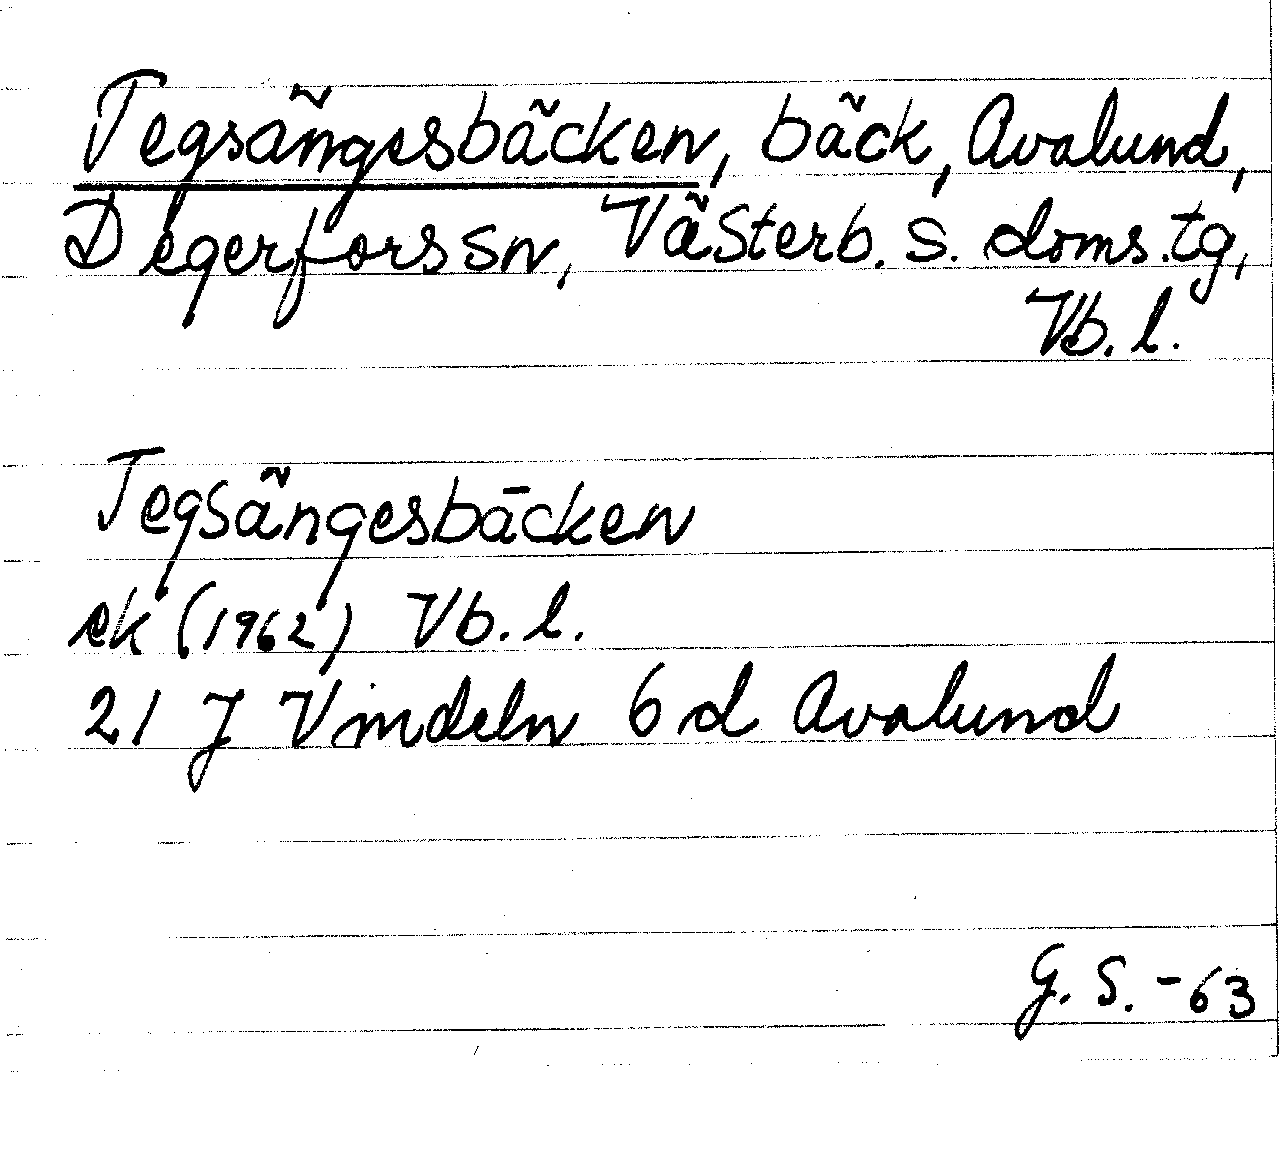 Tegsängesbäcken, bäck, Avalund,
Degerfors sn, Västerb. s. doms.tg,
Vb. l.
Tegsängesbäcken
ek (1962) Vb. l.
21 J Vindeln 6 d Avalund
G. S. -63